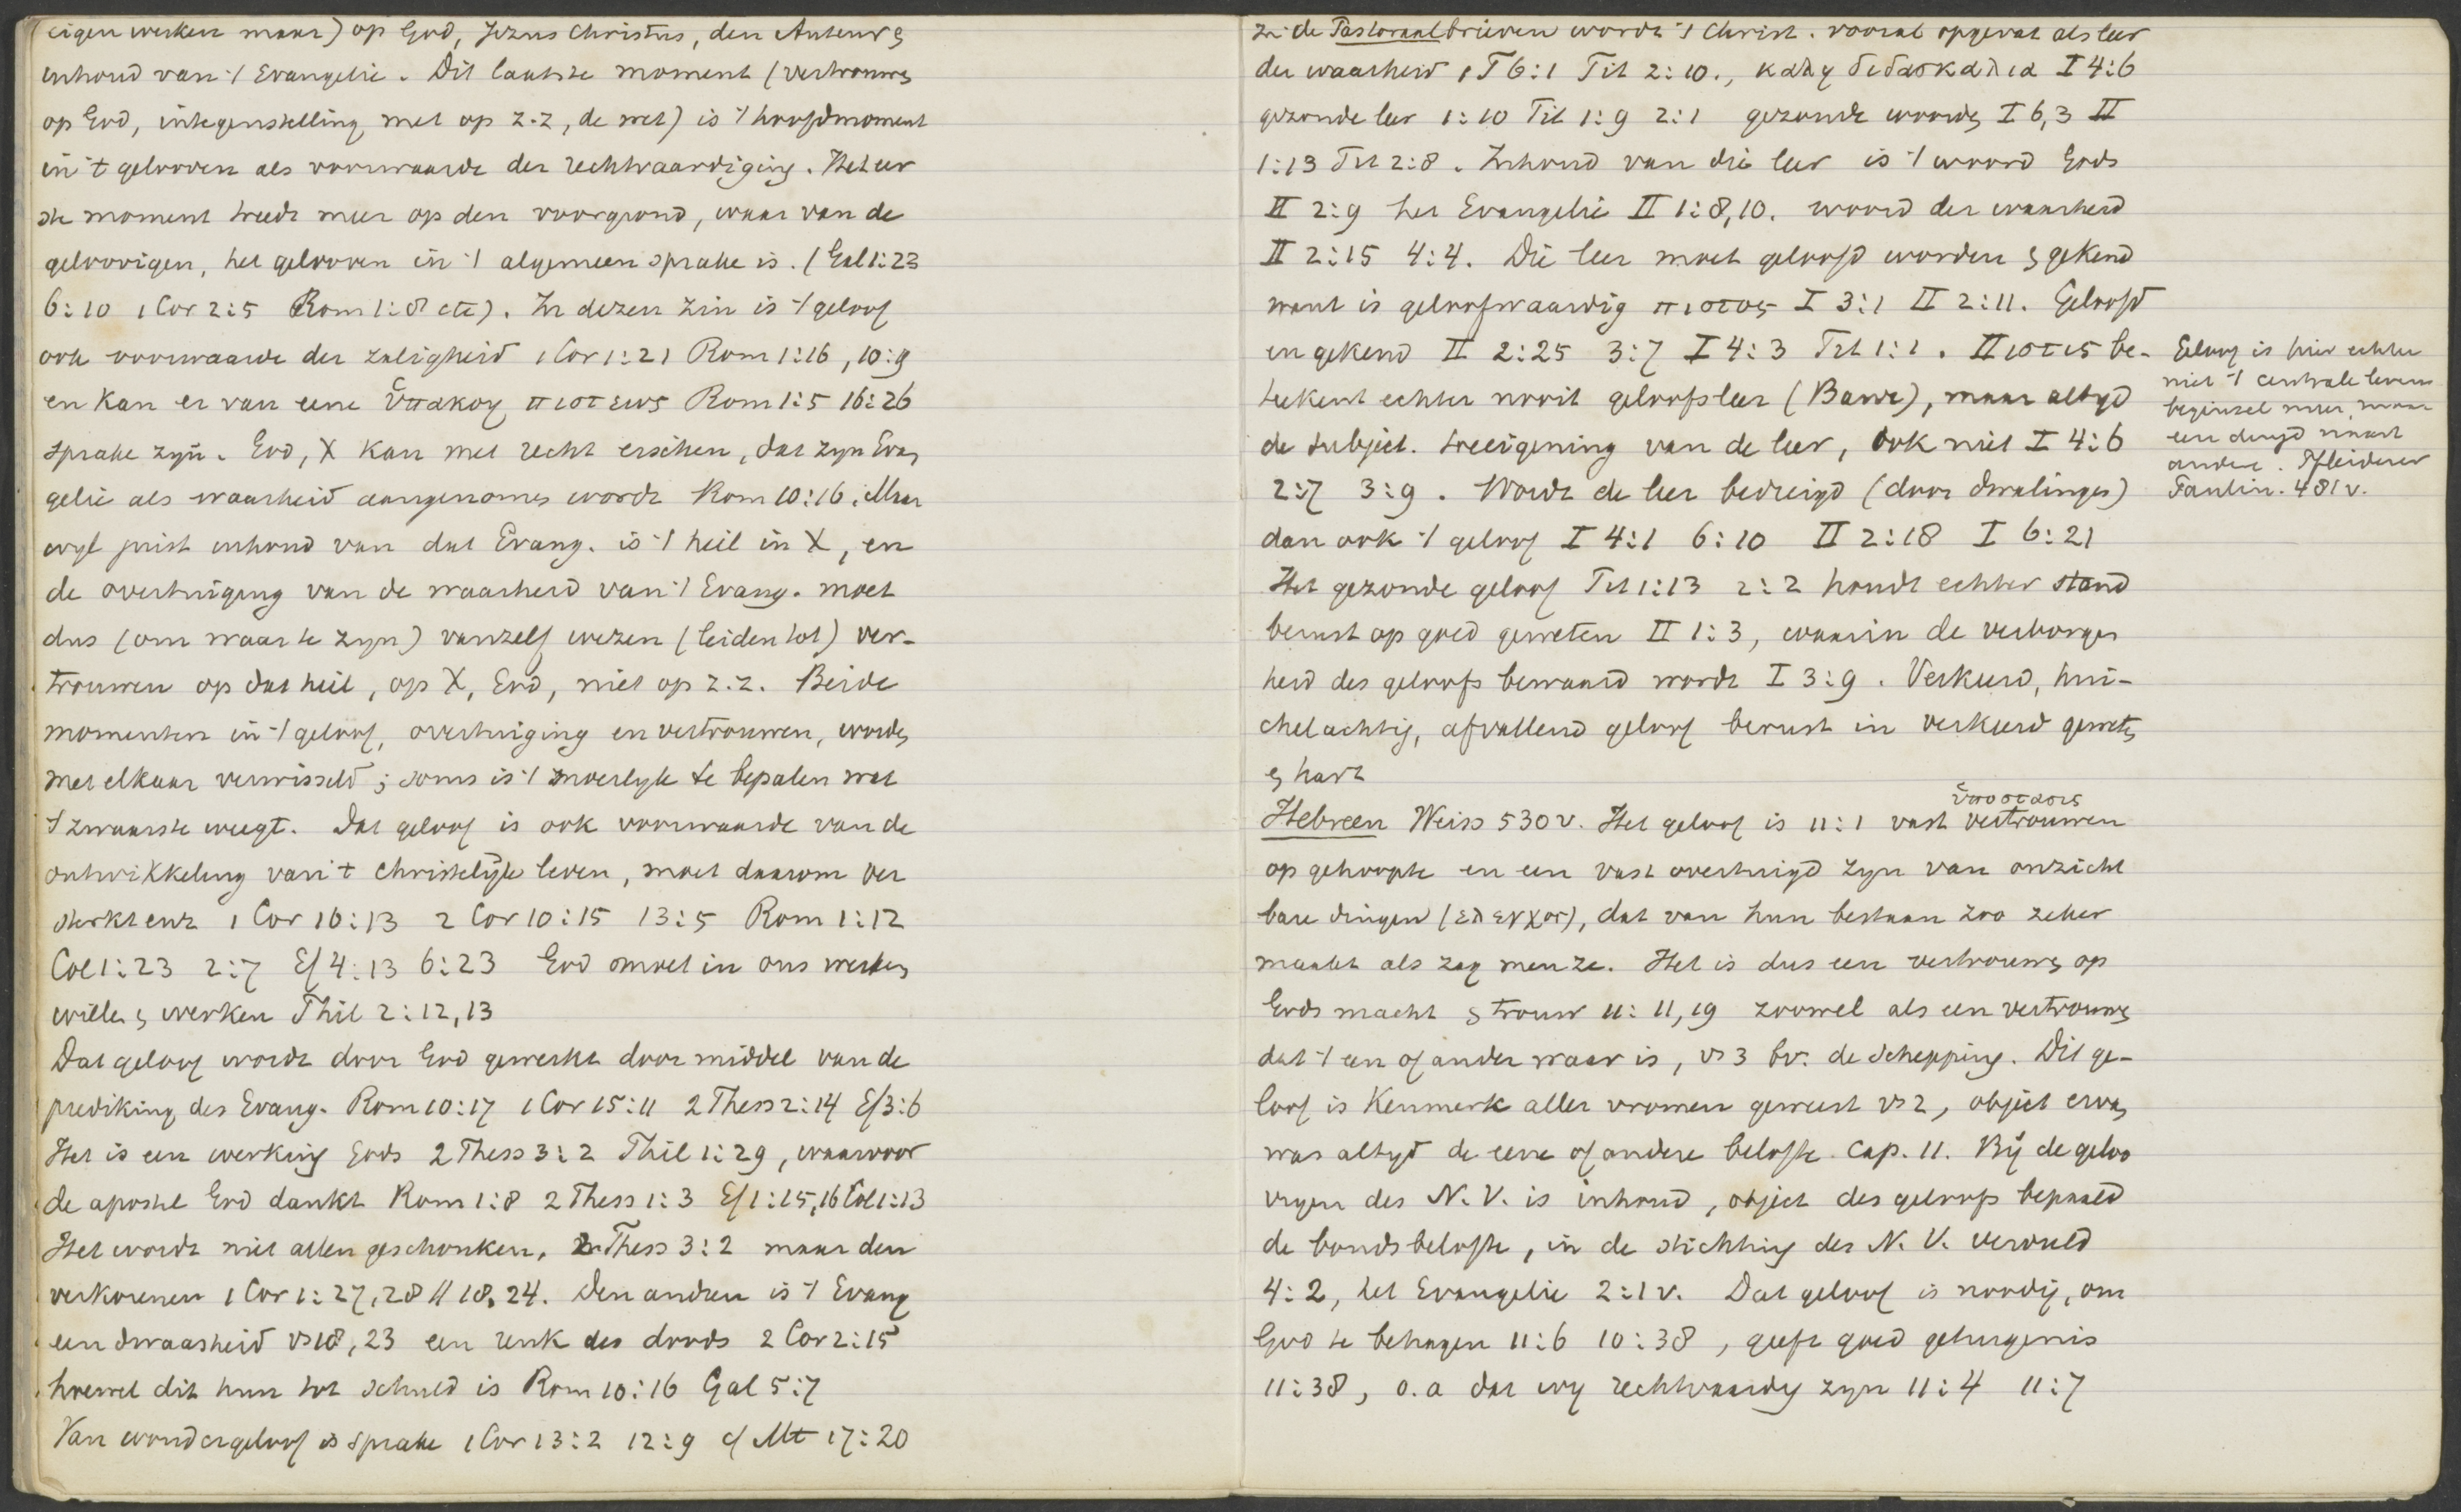 (eigen werken maar) op God, Jezus Christus, den Auteur &
inhoud van 't Evangelie. Dit laatste moment (vertrouwen
op God, in tegenstelling met op z.z, de wet) is 't hoofdmoment
in 't gelooven als voorwaarde der rechtvaardiging. Het eer
ste moment treedt meer op den voorgrond, waar van de
geloovigen, het gelooven in 't algemeen sprake is. (Gal 1:23
6:10 1 Cor 2:5 Rom 1:8 etc). In dezen zin is 't geloof
ook voorwaarde der zaligheid 1 Cor 1:21 Rom 1:16, 10:9
en kan er van eene ὑπακοη πιστεως Rom 1:5 16:26
sprake zijn. God, X kan met recht eischen, dat zijn Evan
gelie als waarheid aangenomen wordt Rom 10:16. Maar
wijl juist inhoud van dat Evang. is 't heil in X, en
de overtuiging van de waarheid van 't Evang. moet
dus (om waar te zijn) vanzelf wezen (leiden tot) ver-
trouwen op dat heil, op X, God, niet op z.z. Beide
momenten in 't geloof, overtuiging en vertrouwen, worden
met elkaar verwisseld; soms is 't moeilyk te bepalen wat
't zwaarste weegt. Dat geloof is ook voorwaarde van de
ontwikkeling van 't christelijk leven, moet daarom ver
sterkt enz 1 Cor 16:13 2 Cor 10:15 13:5 Rom 1:12
Col 1:23 2:7 Ef 4:13 6:23 God moet in ons werken
willen & werken Phil 2:12,13
Dat geloof wordt door God gewerkt door middel van de
prediking des Evang. Rom 10:17 1 Cor 15:11 2 Thess 2:14 Ef 3:6
Het is een werking Gods 2 Thess 3:2 Phil 1:29, waarvoor
de apostel God dankt Rom 1:8 2 Thess 1:3 Ef 1:15,16 Col 1:13
Het wordt niet allen geschonken, 2 Thess 3:2 maar den
verkorenen 1 Cor 1:27,28 // 18, 24. Den andren is 't Evang
een dwaasheid vs 18, 23 een reuk des doods 2 Cor 2:15
hoewel dit hun tot schuld is Rom 10:16 Gal 5:7
Van wondergeloof is sprake 1 Cor 13:2 12:9 cf Mt 17:20
In de Pastoraalbrieven wordt 't Christ. vooral opgevat als leer
der waarheid 1 T 6:1 Tit 2:10., καλη διδασκαλια I 4:6
gezonde leer 1:10 Tit 1:9 2:1 gezonde woorden I 6,3 II
1:13 Tit 2:8. Inhoud van die leer is 't woord Gods
II 2:9 het Evangelie II 1:8,10. woord der waarheid
II 2:15 4:4. Die leer moet geloofd worden & gekend
want is geloofwaardig πιστος I 3:1 II 2:11. Geloofd
en gekend II 2:25 3:7 I 4:3 Tit 1:1. Πιστις be-
teekent echter nooit geloofsleer (Baur), maar altyd
de subject. toeeigening van de leer, ook niet I 4:6
2:7 3:9. Wordt de leer bedreigd (door dwalingen)
dan ook 't geloof I 4:1 6:10 II 2:18 I 6:21
Het gezonde geloof Tit 1:13 2:2 houdt echter stand
berust op goed geweten II 1:3, waarin de verborgen
heid des geloofs bewaard wordt I 3:9. Verkeerd, hui-
chelachtig, afvallend geloof berust in verkeerd geweten
& hart
Geloof is hier echter
niet 't centrale levens
beginsel meer, maar
een deugd naast
andere. Pfleiderer
Paulin. 481 v.
ὑποστασις
Hebreen Weiss 530 v. Het geloof is 11:1 vast vertrouwen
op gehoopte en een vast overtuigd zyn van onzicht
bare dingen (ελεγχος), dat van hun bestaan zoo zeker
maakt als zag men ze. Het is dus een vertrouwen op
Gods macht & trouw 11:11,19 zoowel als een vertrouwen
dat 't een of ander waar is, vs 3 bv. de schepping. Dit ge-
loof is kenmerk aller vromen geweest vs 2, object ervan
was altyd de eene of andere belofte cap. 11. Bij de geloo
vigen des N.V. is inhoud, object des geloofs bepaald
de bondsbelofte, in de stichting des N.V. vervuld
4:2, het Evangelie 2:1 v. Dat geloof is noodig, om
God te behagen 11:6 10:38, geeft goed getuigenis
11:38, o.a dat wy rechtvaardig zyn 11:4 11:7